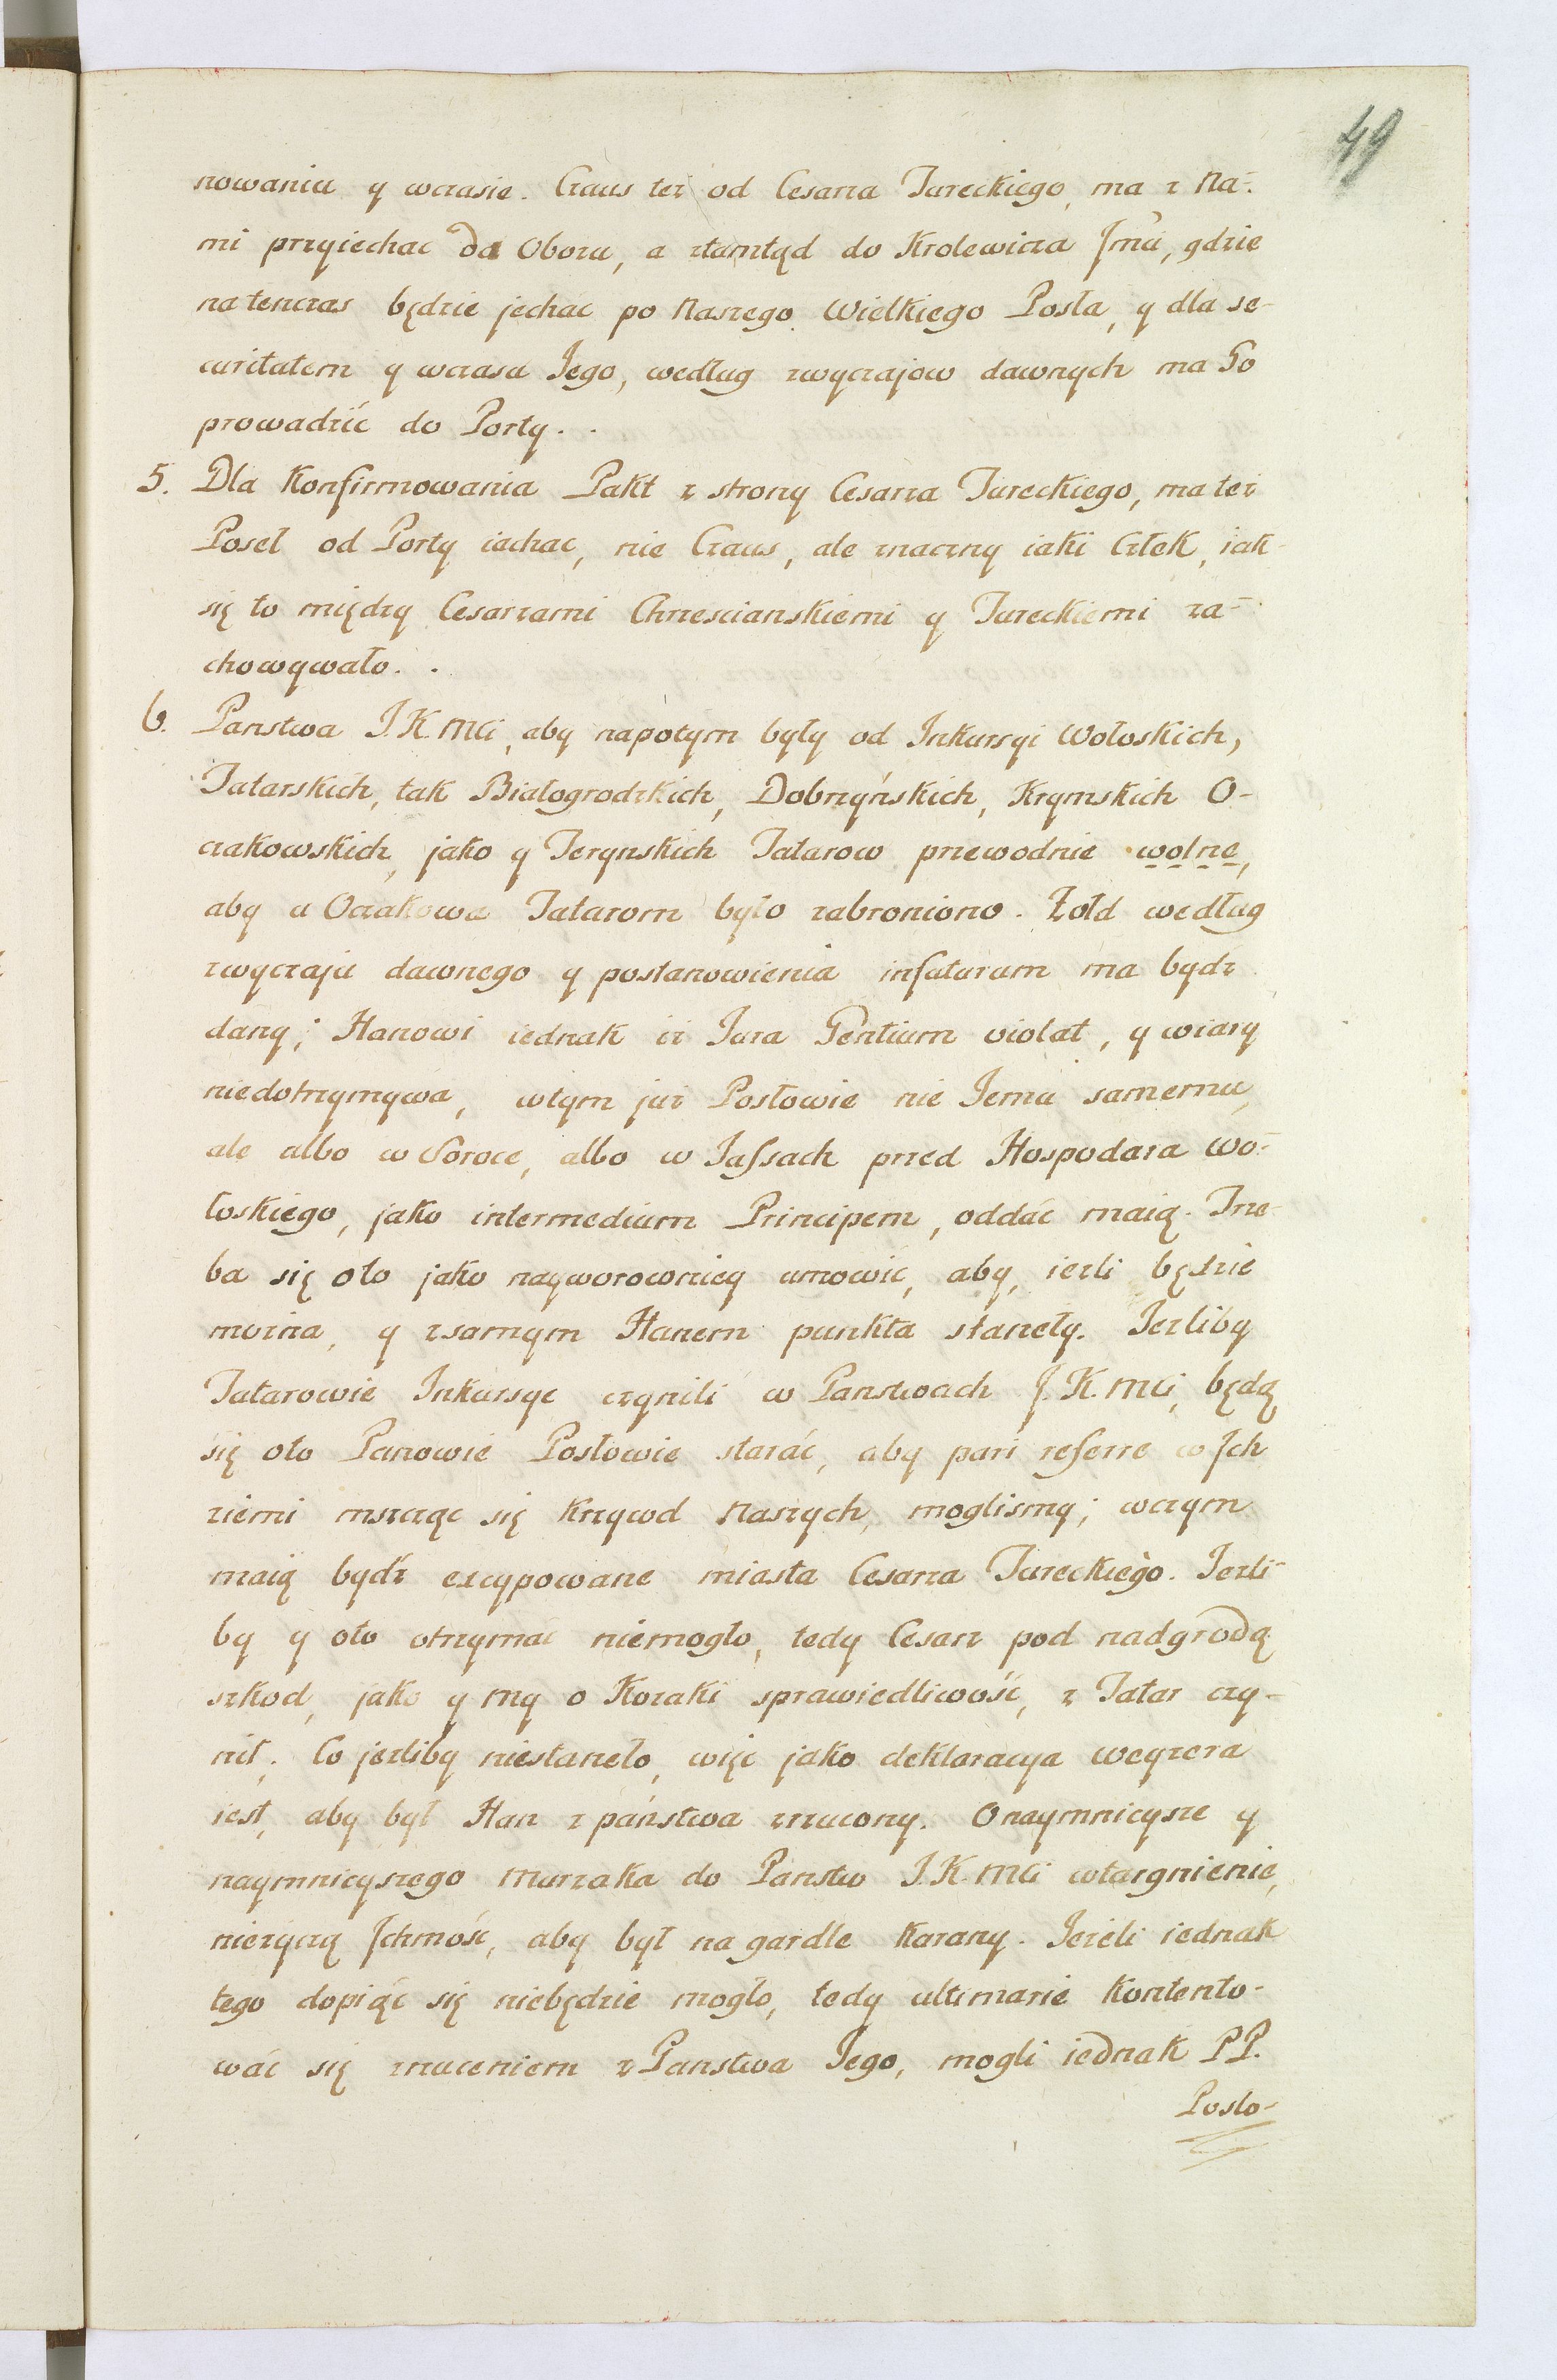 49
nowaniu y wczasie. Czaus też od Cesarza Tureckiego, ma z Na-
mi przyiechac do Obozu, a ztamtąd do Krolewicza Jmći, gdzie
natenczas będzie jechac po Naszego Wielkiego Posła, y dla se-
curitatem y wczasu Jego, według zwyczajow dawnych ma Go
prowadzić do Porty. .
5. Dla Konfirmowania Pakt z strony Cesarza Tureckiego, ma też
Poseł od Porty iachac, nie Czaus, ale znaczny iaki Człek, iak
się to między Cesarzami Chrzescianskiemi y Tureckiemi za-
chowywało. .
6. Panstwa J. K. Mći, aby napotym były od Inkursyi Wołoskich,
Tatarskich, tak Białogrodzkich, Dobrzyńskich, Krymskich O-
czakowskich, jako y Terynskich Tatarow przewodnie wolne,
aby u Oczakowa Tatarom było zabroniono. Żołd według
zwyczaju dawnego y postanowienia infuturum ma bydz
dany; Hanowi iednak iż Jura Gentium violat, y wiary
niedotrzymywa, wtym już Posłowie nie Jemu samemu,
ale albo w Soroce, albo w Jassach przed Hospodara Wo-
łoskiego, jako intermedium Principem, oddać maią. Trze-
ba się oto jako nayworowniey umowić, aby, ieżli będzie
można, y zsamym Hanem punkta stanęły. Jeżliby
Tatarowie Inkursye czynili w Panstwach J. K. Mći, będą
się oto Panowie Posłowie starać, aby pari referre w Ich
ziemi mszcząc się Krzywd Naszych, moglismy; wczym
maią bydź excypowane miasta Cesarza Tureckiego. Jeżli-
by y oto otrzymać niemogło, tedy Cesarz pod nadgrodą
szkod, jako y my o Kozaki sprawiedliwość, z Tatar czy-
nił. Co jeżliby niestaneło, więc jako deklaracya Wezyra
iest, aby był Han z państwa zrzucony. O naymnieysze y
naymnieyszego Murzaka do Panstw J. K. Mći wtargnienie,
nieżyczą Ichmość, aby był na gardle Karany. Jeżeli iednak
tego dopiąć się niebędzie mogło, tedy ultimarie Kontento-
wać się zrzuceniem z Panstwa Jego, mogli iednak PP.
Posło-